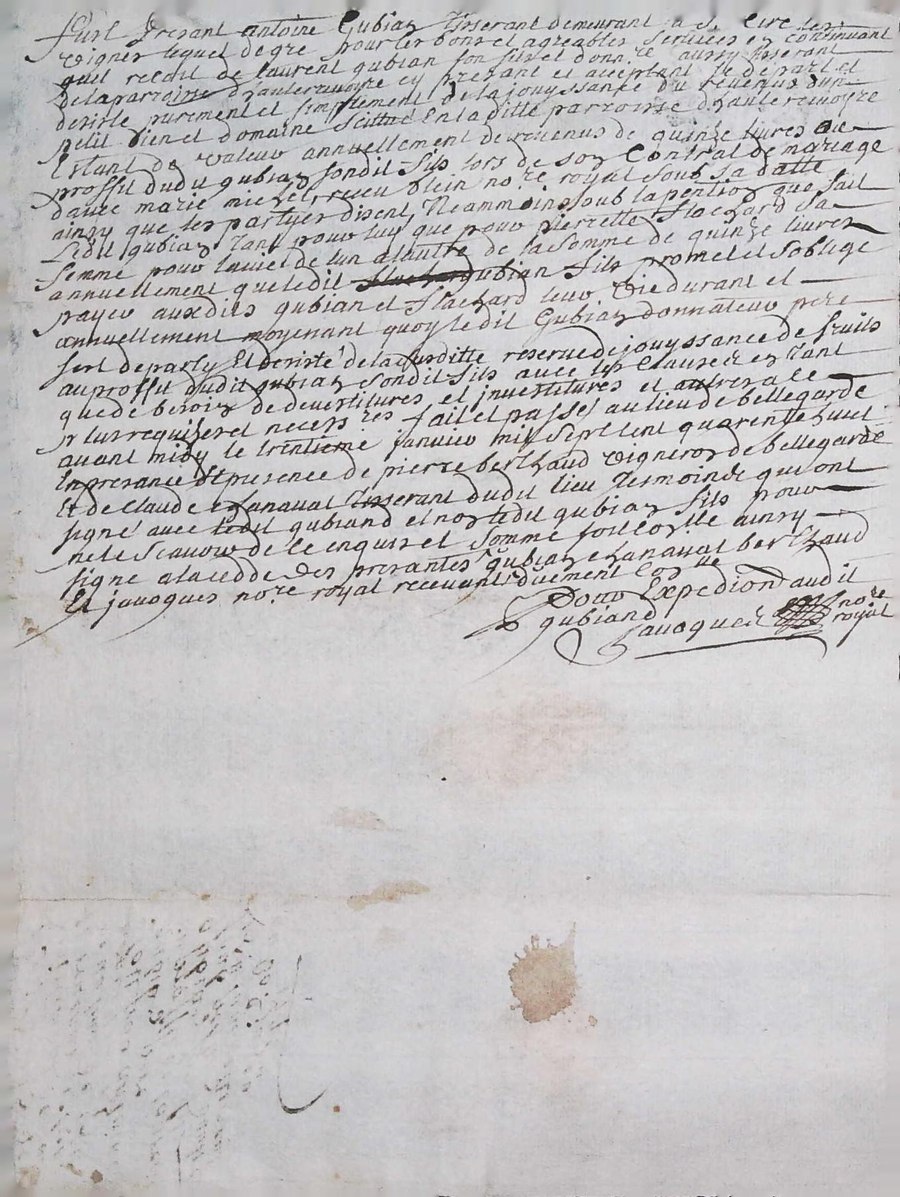 fust present antoine Gubian Tisserant demeurant a st Cire les
vignes lequel de gre pour les bons et agreables services en continuant
quil recoit de laurent gubian son fils et donn.re aussy tisserant
de la parroisse dhauterivoire cy present et aceptant se depart et
desiste purement et simplement de la jouyssance du revenus dun
petit bien et domaine scittué en la ditte parroisse dhauterivoire
Estant de valeur annuellement de revenus de quinze livres au
proffit dudit gubian sondit fils lors de son Contrat de mariage
davec marie michel, receu blein no.re royal sous sa datte
ainsy que les partyes disent, Neammoins sous la pention que fait
Ledit gubian tant pour luy que pour pierrette flachard sa
femme pour la vie de lun a lautre de la somme de quinze livres
annuellement que ledit gubian fils promet et soblige
payer auxdits gubian et flachard leur vie durant et
annuellement moyenant quoy ledit Gubian donnateur pere
sest departy Et desisté de la susditte reserve de jouyssance de fruits
au proffit dudit gubian sondit fils avec les clauses en tant
que de besoin de devestitures et investitures et autres a ce
plus requises et necess.res fait et passé au lieu de bellegarde
avant midy le trentieme janvier mil sept cent quarente huit
En presance Et presence de pierre berthaud vigneron de bellegarde
Et de Claude chanavat Tisserant dudit lieu Tesmoins qui ont
signé avec ledit gubiand et non ledit gubian fils pour
ne le scavoir de ce enquis et sommé soit controllé ainsy
signe a la cedde des presantes gubian chanavat berthaud
Et javogues no.re royal recevant duement con.lle
Pour Expedion audit
gubiand
Javogues no.re
royal